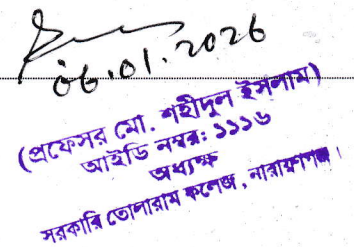 06.01.2026
(প্রফেসর মো. শহীদুল ইসলাম)
আইডি নম্বর: ১১১৬
অধ্যক্ষ
সরকারি তোলারাম কলেজ, নারায়ণগঞ্জ।